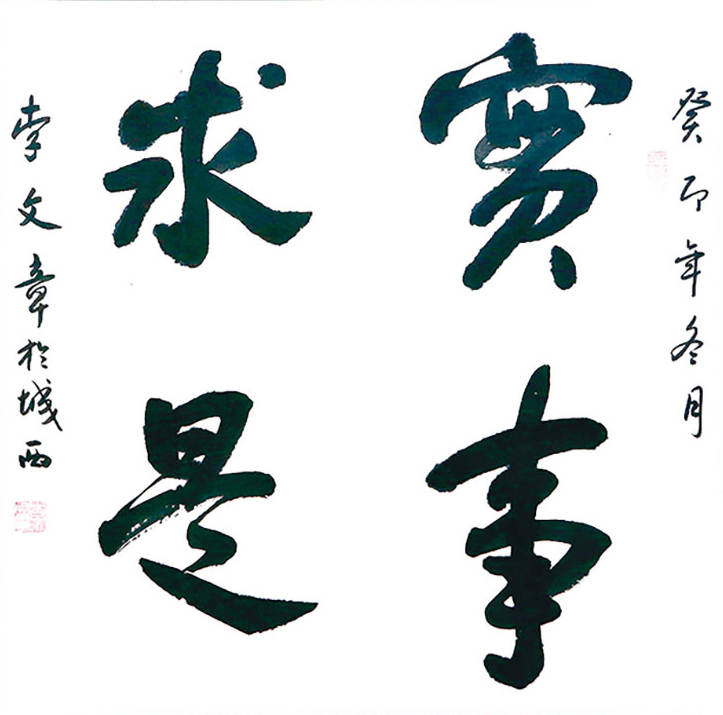 癸卯年冬月
實事
求是
李文章於城西